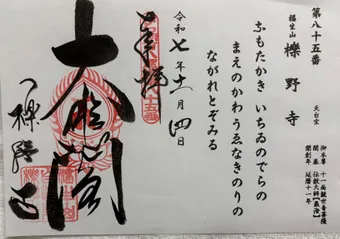 第八十五番
福生山 櫟野寺 天台宗
御本尊 十一面観世音菩薩
開基 伝教大師【最澄】
開創年 延暦十一年
ふもたかき いちゐのでらの
まえのかわうゑなきのりの
ながれとぞみる
令和七年十一月四日
奉拝
大悲閣
櫟野寺